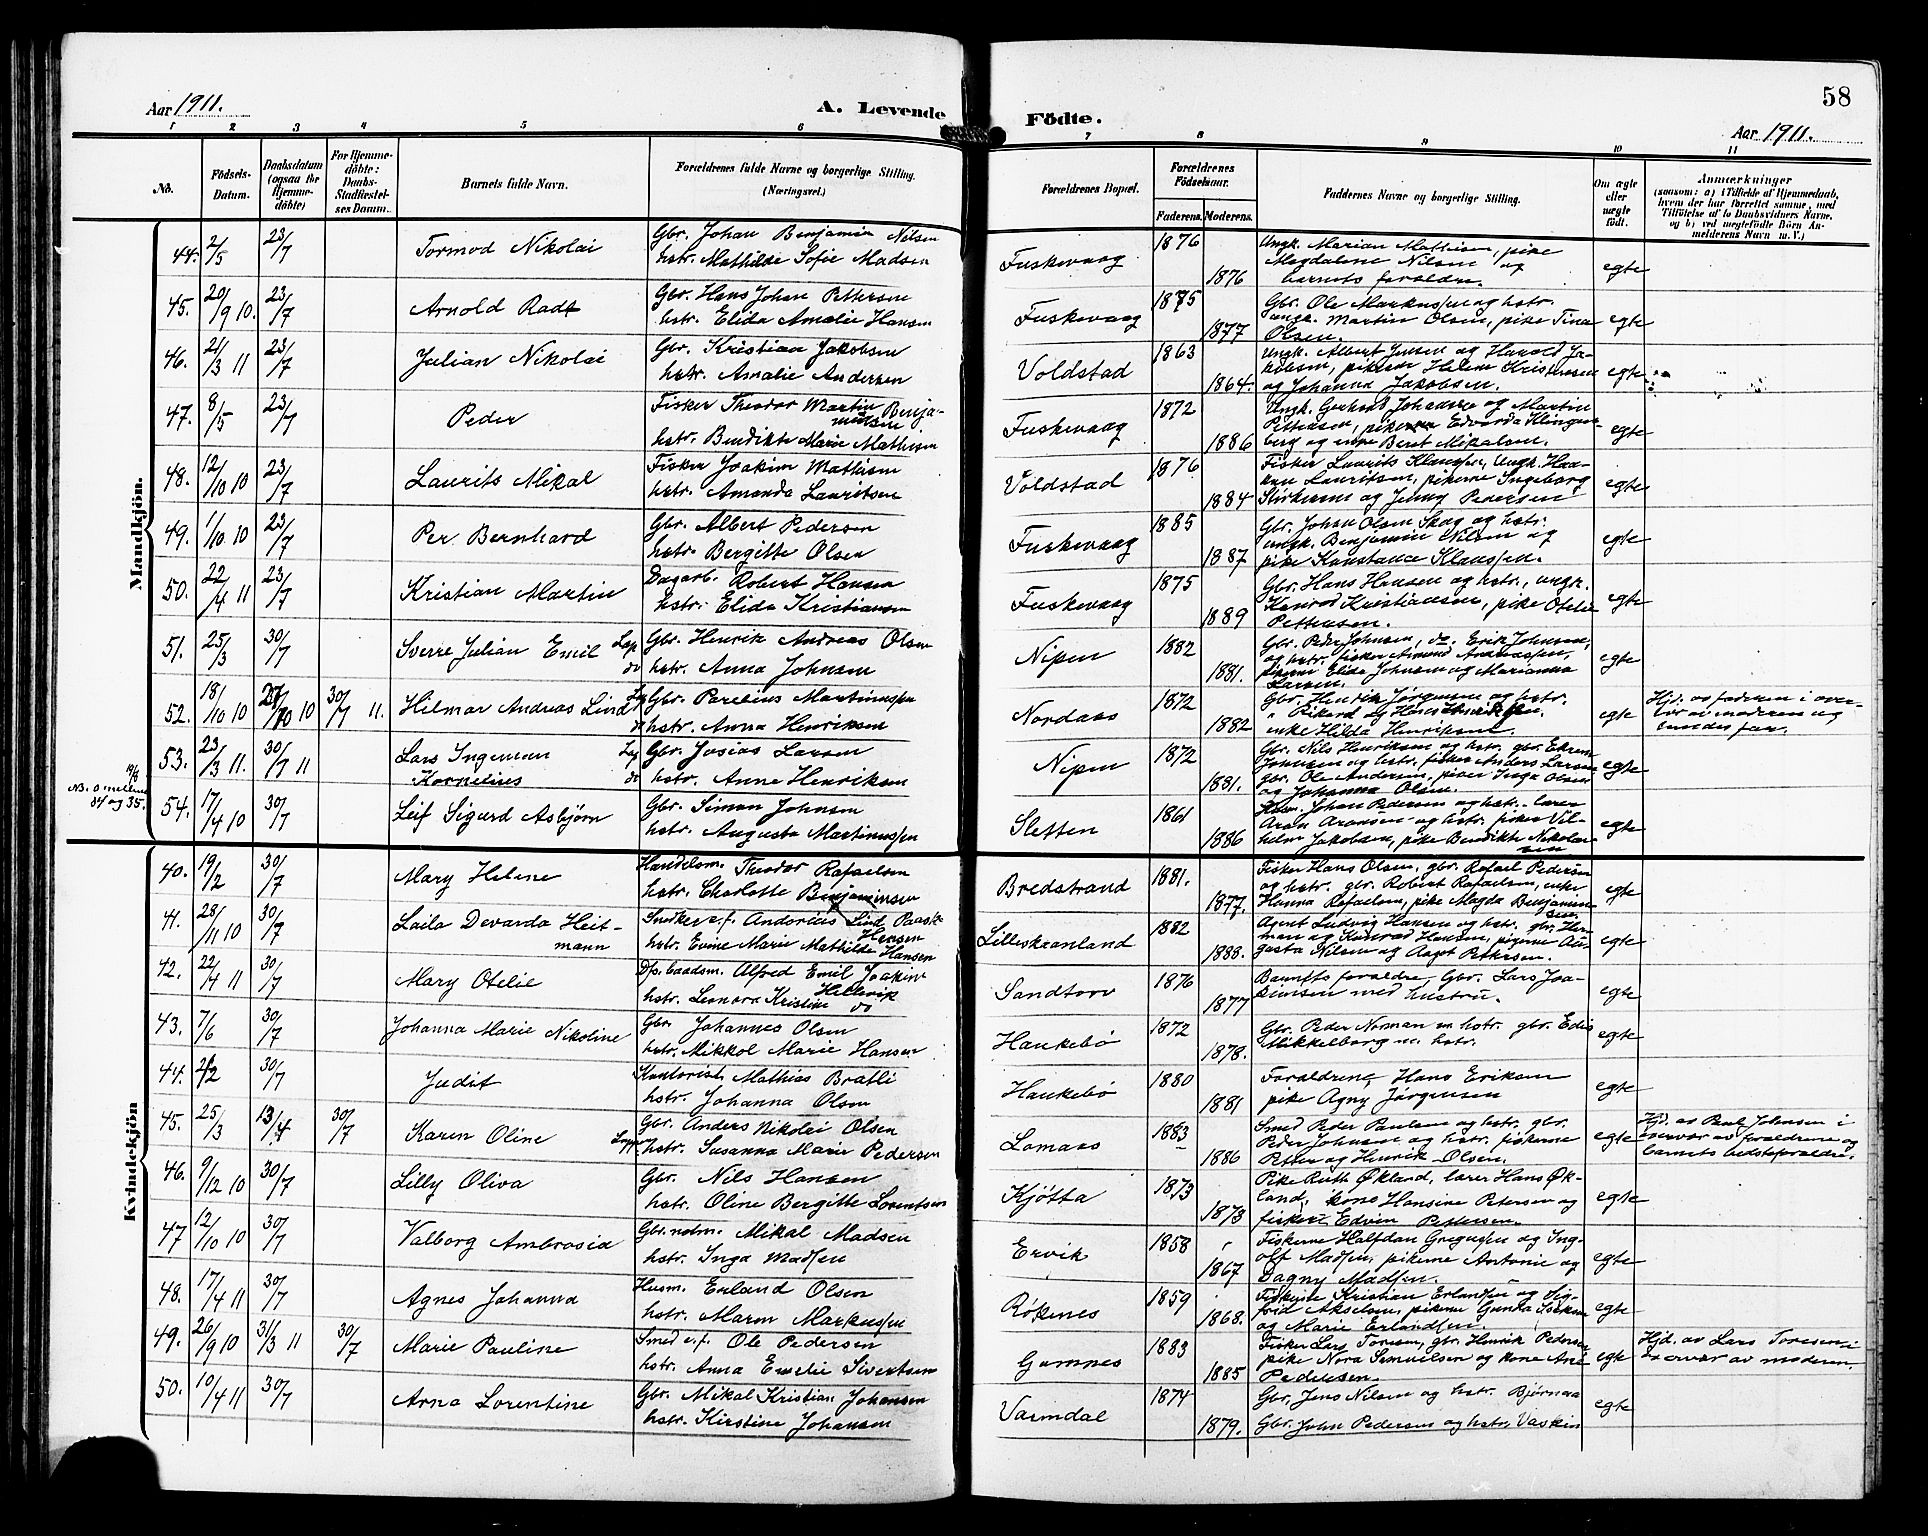 58
Aar 1911. A. Levende Födte. Aar 1911.
1 2 3 4 5 6 7 8 9 10 11
No. Födsels-Datum. Daabsdatum (ogsaa for Hjemme-döbte) For Hjemme-döbte: Daabs-Stadfæstel-ses Datum. Barnets fulde Navn. Forældrenes fulde Navne og borgerlige Stilling. (Næringsvei.) Forældrenes Bopæl. Forældrenes Födselsaar. Faderens. Moderens. Faddernes Navne og borgerlige Stilling. Om ægte eller uægte födt. Anmærkninger
(saasom: a) i Tilfælde af Hjemmedaab,
hvem der har forrettet samme, med
Tilföielse af to Daabsvidners Navne,
og b) ved uægtefödte Börn An-
melderens Navn m. V.)
Mandkjön.
44. 2/5 23/7 Tormod Nikolai Gbr. Johan Benjamin Nilsen
hstr. Mathilde Sofie Madsen
Fuskevaag 1876 1876 Ungk. Marian Mathisen, pike
Magdalene Nilsen og
barnets foraldre. egte
45. 20/9 10. 23/7 Arnold Radt Gbr. Hans Johan Pettersen
hstr. Elida Amalie Hansen
Fuskevaag 1875 1877 Gbr. Ole Markussen og hstr.
ungk. Martin Olsen, pike Tina
Olsen. egte
46. 21/3 11 23/7 Julian Nikolai Gbr. Kristian Jakobsen
hstr. Amalie Andersen
Voldstad 1863 1864. Ungk. Albert Jensen og Harald Ja-
kobsen, pikerne Helene Kristensen
og Johanna Jakobsen. egte
47. 8/5 23/7 Peder Fisker Theodor Martin Benja-
minsen
hstr. Bendikte Marie Mathisen
Fuskevaag 1872 1886 Ungk. Gerhard Johansen og Martin
Pettersen, pikerne Edvarda Klingen-
berg og enke Beret Mikalsen. egte
48. 12/10 10 23/7 Laurits Mikal Fisker Joakim Mathisen
hstr. Amanda Lauritsen
Voldstad 1876 1884 Fisker Laurits Klaussen, Ungk. Haa-
kon Lauritsen, pikerne Ingeborg
og Jenny Pedersen egte
49. 1/10 10 23/7 Per Bernhard Gbr. Albert Pedersen
hstr. Bergitte Olsen
Fuskevaag 1885 1887 Gbr. Johan Olsen Skog og hstr.
ungk. Benjamin Nilsen og
pike Konstance Klaussen. egte
50. 22/4 11 23/7 Kristian Martin Dagarb. Robert Hansen
hstr. Elida Kristiansen
Fuskevaag 1875 1889 Gbr. Hans Hansen og hstr., ungk.
Konrad Kristiansen, pike Otelie
Pettersen. egte
51. 25/3 30/7 Sverre Julian Emil Lap Gbr. Henrik Andreas Olsen
do hstr. Anna Johnsen
Nipen 1882 1881. Gbr. Peder Johnsen, do. Erik Johnsen,
og hstr. fisker Amund Andreassen,
pikerne Elida Johnsen og Marianna
Larsen. egte
52. 18/10 10 27/10 10 30/7 11. Hilmar Andreas Lind Gbr. Parelius Martinussen
hstr. Anna Henriksen
Nordaas 1872 1882 Gbr. Henrik Jørgensen og hstr.
Rikard og Hans Henriksen.
enke Hilda Henriksen. egte Hjd. av faderen i over-
vær av moderen og
hendes far.
53. 23/3 11. 30/7 11 Lars Ingeman Gbr. Josias Larsen
Kornelius do hstr. Anne Henriksen
Nipen 1872 1881. Gbr. Nils Henriksen og hstr. gbr.
Johnsen og hstr. fisker Anders Larsen
gbr. Ole Andersen, piker Inga Olsen
og Johanna Olsen. egte
NB. 34 og 35.
54. 17/4 10 30/7 Leif Sigurd Asbjørn Gbr. Simon Johnsen
hstr. Augusta Martinussen
Sletten 1861 1886 Johan Pedersen og hstr. lærer
Aron Aronsen og hstr. piker Vil-
helm Jakobsen, pike Bendikte Nikolai-
sen egte
Kvindekjön
40. 19/2 30/7 Mary Helene Handelsm. Theodor Rafaelsen
hstr. Charlotte Benjaminsen
Bredstrand 1881. 1877. Fisker Hans Olsen, gbr. Rafael Pedersen
og hstr. gbr. Robert Rafaelsen, enke
Hanna Rafaelsen, pike Magda Benjamin-
sen egte
41. 28/11 10 30/7 Laila Devarda Heit-
mann Snekker e.f. Andorius Lind Raask
Hansen
hstr. Evine Marie Mathilde Hansen
Lilleskaanland 1882 1888. Agent Ludvig Hansen og hstr. gbr. Her-
man og Konrad Hansen, pigerne Au-
gusta Nilsen og Aagot Petersen. egte
42. 22/4 11 30/7 Mary Otelie Dps. baadsm. Alfred Emil Joakim
Hellevik
hstr. Leonora Kristine do
Sandtorv 1876 1877 Barnets foraldre, Gbr. Lars Joa-
kimsen med hustru. egte
43. 7/6 30/7 Johanna Marie Nikoline Gbr. Johannes Olsen
hstr. Mikkol Marie Hansen
Haukebø 1872 1878. Gbr. Peder Norman m hstr. gbr. Edis
Mikkelborg m. hstr. egte
44. 21/2 30/7 Judit Kontorist Mathias Bratli
hstr. Johanna Olsen
Haukebø 1880 1881 Foraldrene, Hans Eriksen
pike Agny Jørgensen egte
45. 25/3 13/4 30/7 Karen Oline Gbr. Anders Nikolai Olsen
hstr. Susanna Marie Pedersen
Lomaas 1883 1886 Smed Peder Paulsen og hstr. gbr.
Peder Johnsen og hstr. fiskerne
Petter og Henrik Olsen. egte Hjd. av Paul Johnsen i
overvær av foraldrene og
barnets bedsteforaldre.
46. 9/12 10 30/7 Lilly Oliva Gbr. Nils Hansen
hstr. Oline Bergitte Lorentsen
Kjøtta 1873 1873 Pike Ruth Økland, lærer Hans Øk-
land, kone Hansine Petersen og
fisker Edvin Pettersen. egte
47 12/10 10 30/7 Valborg Ambrosia Gbr. Mikal Madsen
hstr. Inga Madsen
Ervik 1858 1867 Fiskerne Halfdan Gregusen og Ing-
olf Madsen, pikerne Antonie og
Dagny Madsen. egte
48. 17/4 11 30/7 Agnes Johanna Husm. Erland Olsen
hstr. Maren Markussen
Røkenes 1859 1868. Fiskerne Kristian Erlandsen og Sig-
frid Akselsen, pikerne Gunda
og Marie Erlandsen. egte
49. 26/9 10 31/3 11 30/7 Marie Pauline Smed e.f. Ole Pedersen
hstr. Anna Emelie Sivertsen
Gamnes 1883 1885 Fisker Lars Toresen, gbr. Henrik Pedersen
pike Nora Samuelsen og kone Ane
Pedersen. egte Hjd. av Lars Toresen i
overvær av moderen.
50. 10/4 11 30/7 Arna Lorentine Gbr. Mikal Kristian Johansen
hstr. Kirstine Johansen
Varmdal 1874 1879. Gbr. Jens Nilsen og hstr. Bjørnaa
Gbr. John Pedersen og hstr. Vaskin egte